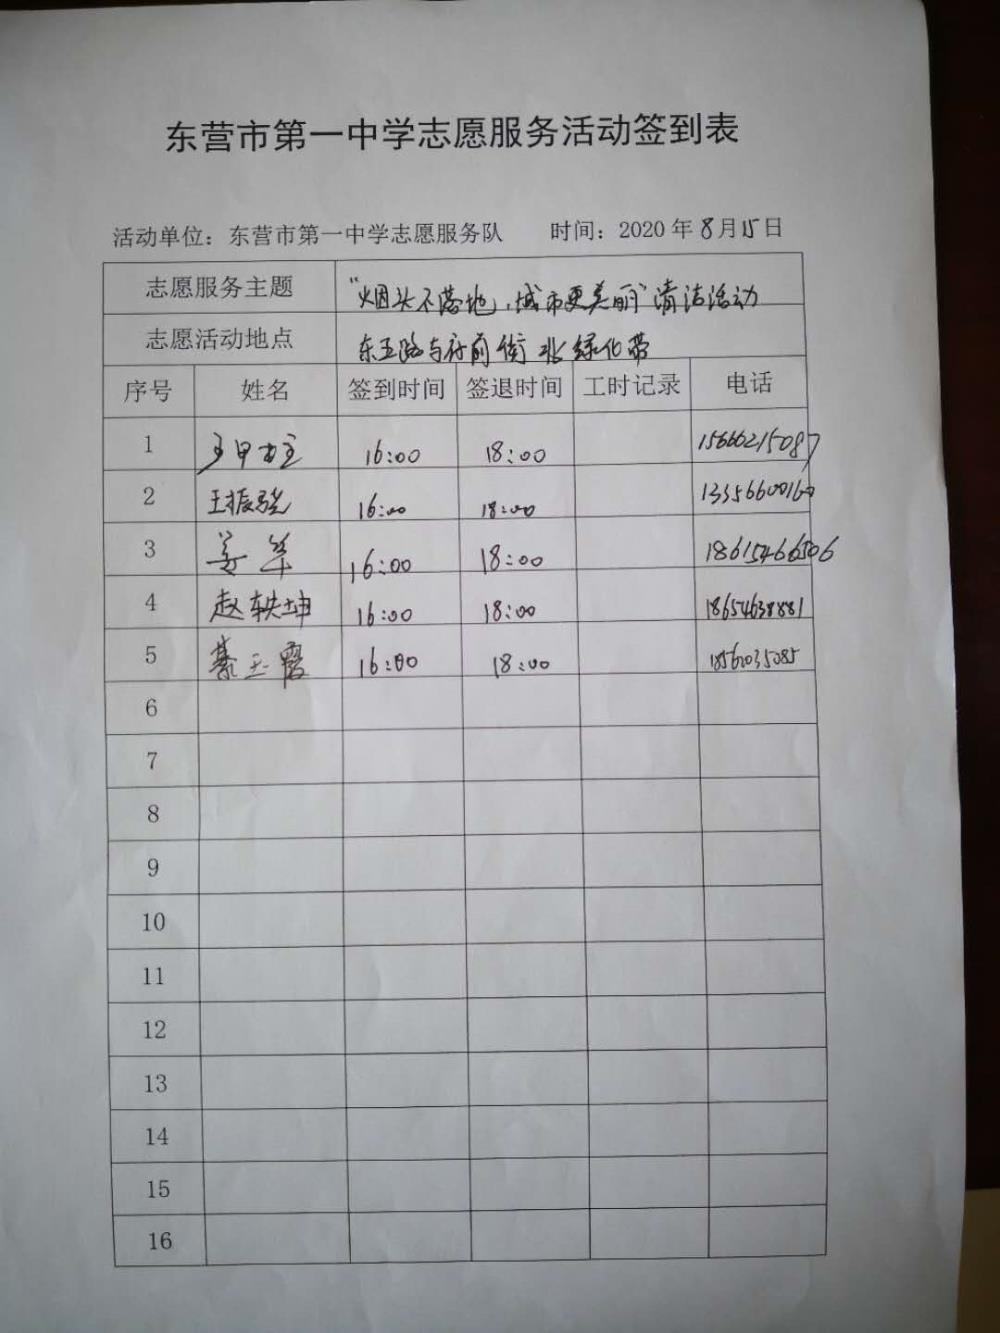 东营市第一中学志愿服务活动签到表
活动单位：东营市第一中学志愿服务队 时间：2020年8月15日
志愿服务主题 “烟头不落地，城市更美丽”清洁活动
志愿活动地点 东五路与府前街北绿化带
序号 姓名 签到时间 签退时间 工时记录 电话
1 16:00 18:00 15666215087
2 王振骁 16:00 18:00 13356600160
3 姜华 16:00 18:00 18615466506
4 赵轶坤 16:00 18:00 18654638881
5 綦玉霞 16:00 18:00 18562035085
6
7
8
9
10
11
12
13
14
15
16